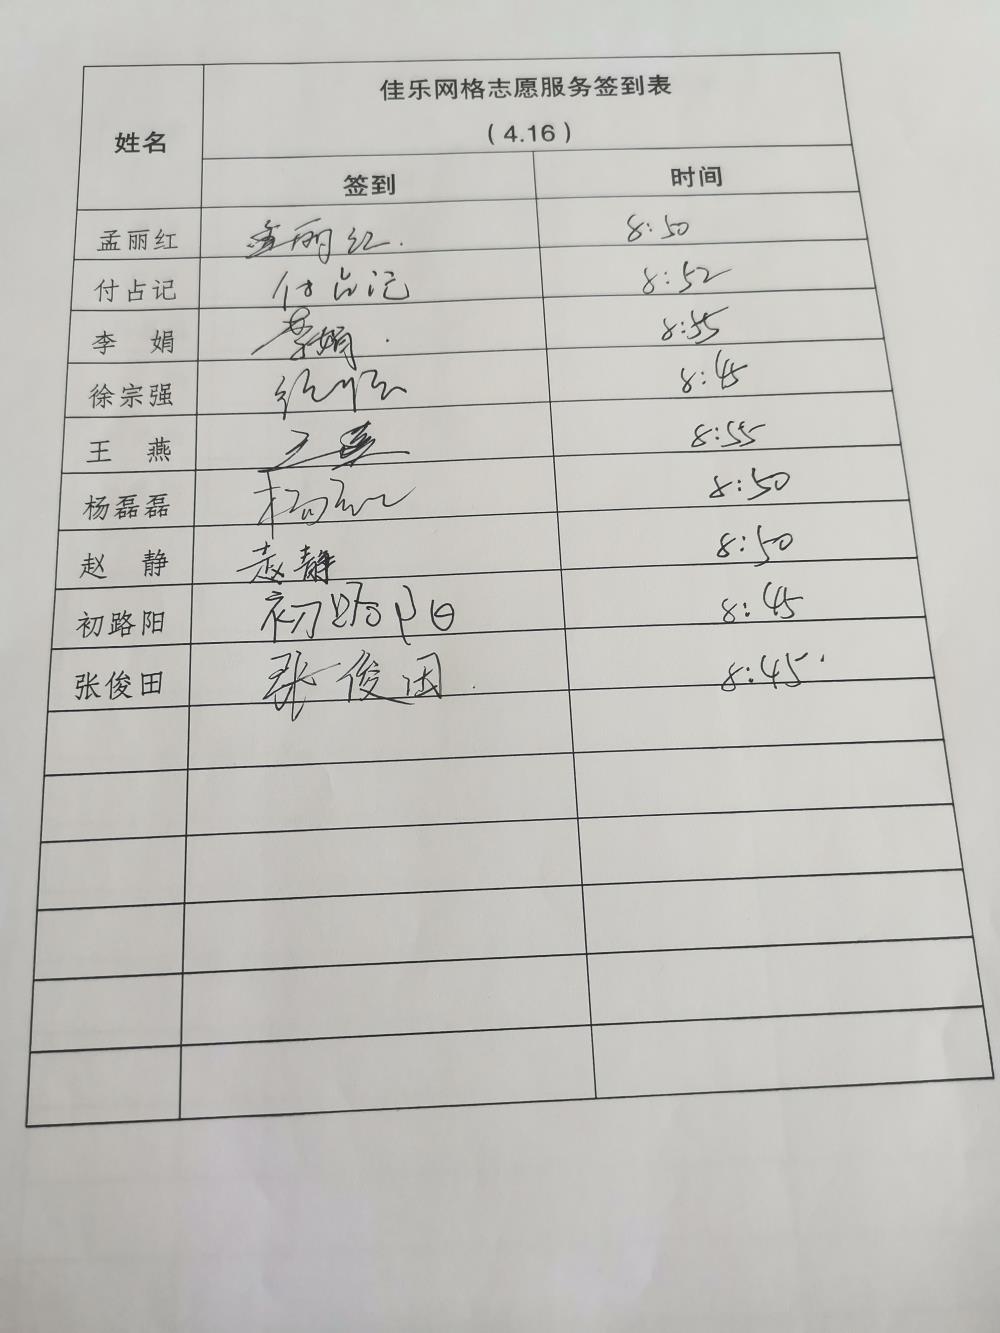 佳乐网格志愿服务签到表
（4.16）
姓名 签到 时间
孟丽红 孟丽红. 8:50
付占记 付占记 8:52
李 娟 李娟. 8:55
徐宗强 8:45
王 燕 王燕 8:55
杨磊磊 杨磊磊 8:50
赵 静 赵静 8:50
初路阳 初路阳 8:45
张俊田 张俊田. 8:45.